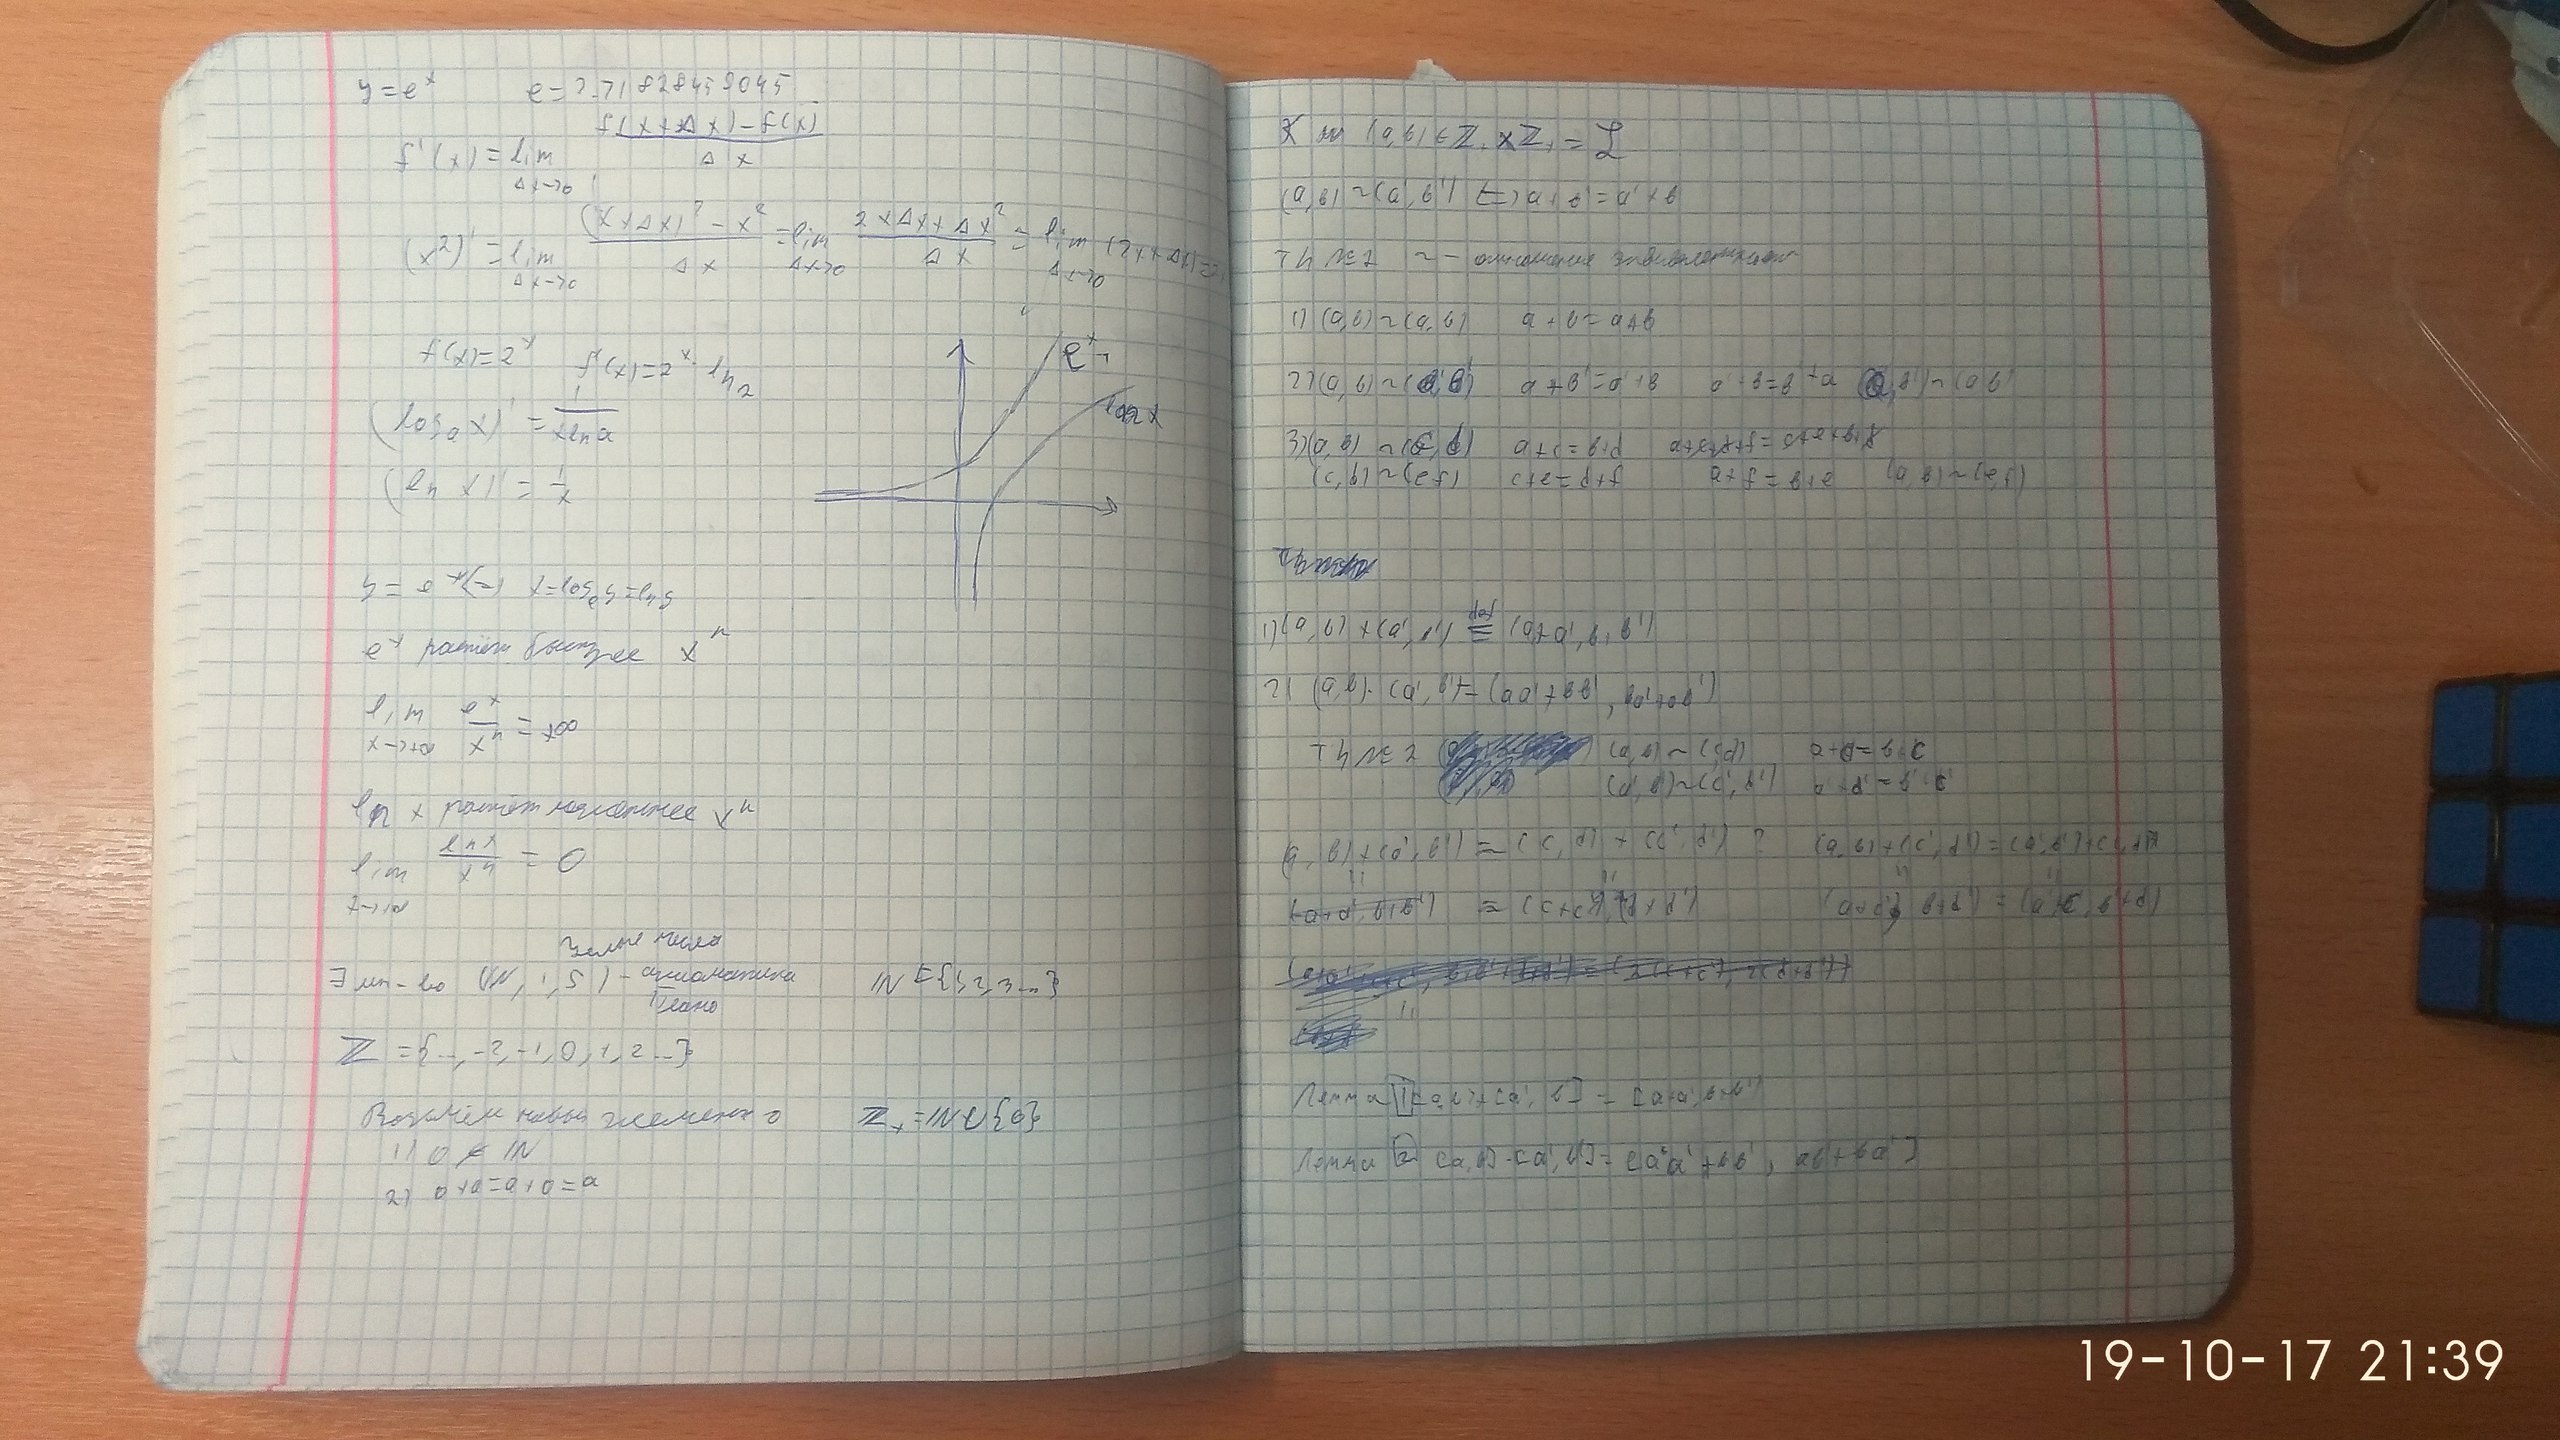 y = e^x e = 2.71828459045
f'(x) = lim Δx→0 (f(x+Δx) − f(x)) / Δx
(x²)' = lim Δx→0 ((x+Δx)² − x²) / Δx = lim Δx→0 (2xΔx + Δx²) / Δx = lim Δx→0 (2x + Δx) =
f(x) = 2^x f'(x) = 2^x · ln 2
(log_a x)' = 1 / (x ln a)
(ln x)' = 1/x
e^x
y = e^x <=> x = log_e y = ln y
e^x растёт быстрее x^n
lim x→+∞ e^x / x^n = +∞
ln x растёт медленнее x^n
lim x→+∞ ln x / x^n = 0
Целые числа
∃ мн-во (ℕ, 1, S) − аксиоматика Пеано ℕ = {1, 2, 3 ...}
ℤ = {..., -2, -1, 0, 1, 2 ...}
Возьмём новый элемент 0 ℤ₊ = ℕ ∪ {0}
1) 0 ∉ ℕ
2) 0 + a = a + 0 = a
(a, b) ∈ ℤ₊ × ℤ₊ =
(a, b) ~ (a', b') <=> a + b' = a' + b
Th № 1 ~ − отношение эквивалентности
1) (a, b) ~ (a, b) a + b = a + b
2) (a, b) ~ (a', b') a + b' = a' + b (a', b') ~ (a, b)
3) (a, b) ~ (c, d) a + c = b + d
c + e = d + f a + f = b + e (a, b) ~ (e, f)
1) (a, b) + (a', b') ≝ (a + a', b + b')
2) (a, b) · (a', b') = (aa' + bb', ba' + ab')
Th № 2 (a, b) ~ (c, d) a + d = b + c
(a', b') ~ (c', d') a' + d' = b' + c'
(a, b) + (a', b') = (c, d) + (c', d') ? (a, b) + (c', d') = (a', b') + (c, d)
(a + a', b + b') = (c + c', d + d') (a + c', b + d') = (a' + c, b' + d)
Лемма 1 [a, b] + [a', b'] = [a + a', b + b']
Лемма 2 [a, b] · [a', b'] = [aa' + bb', ab' + ba']
19-10-17 21:39